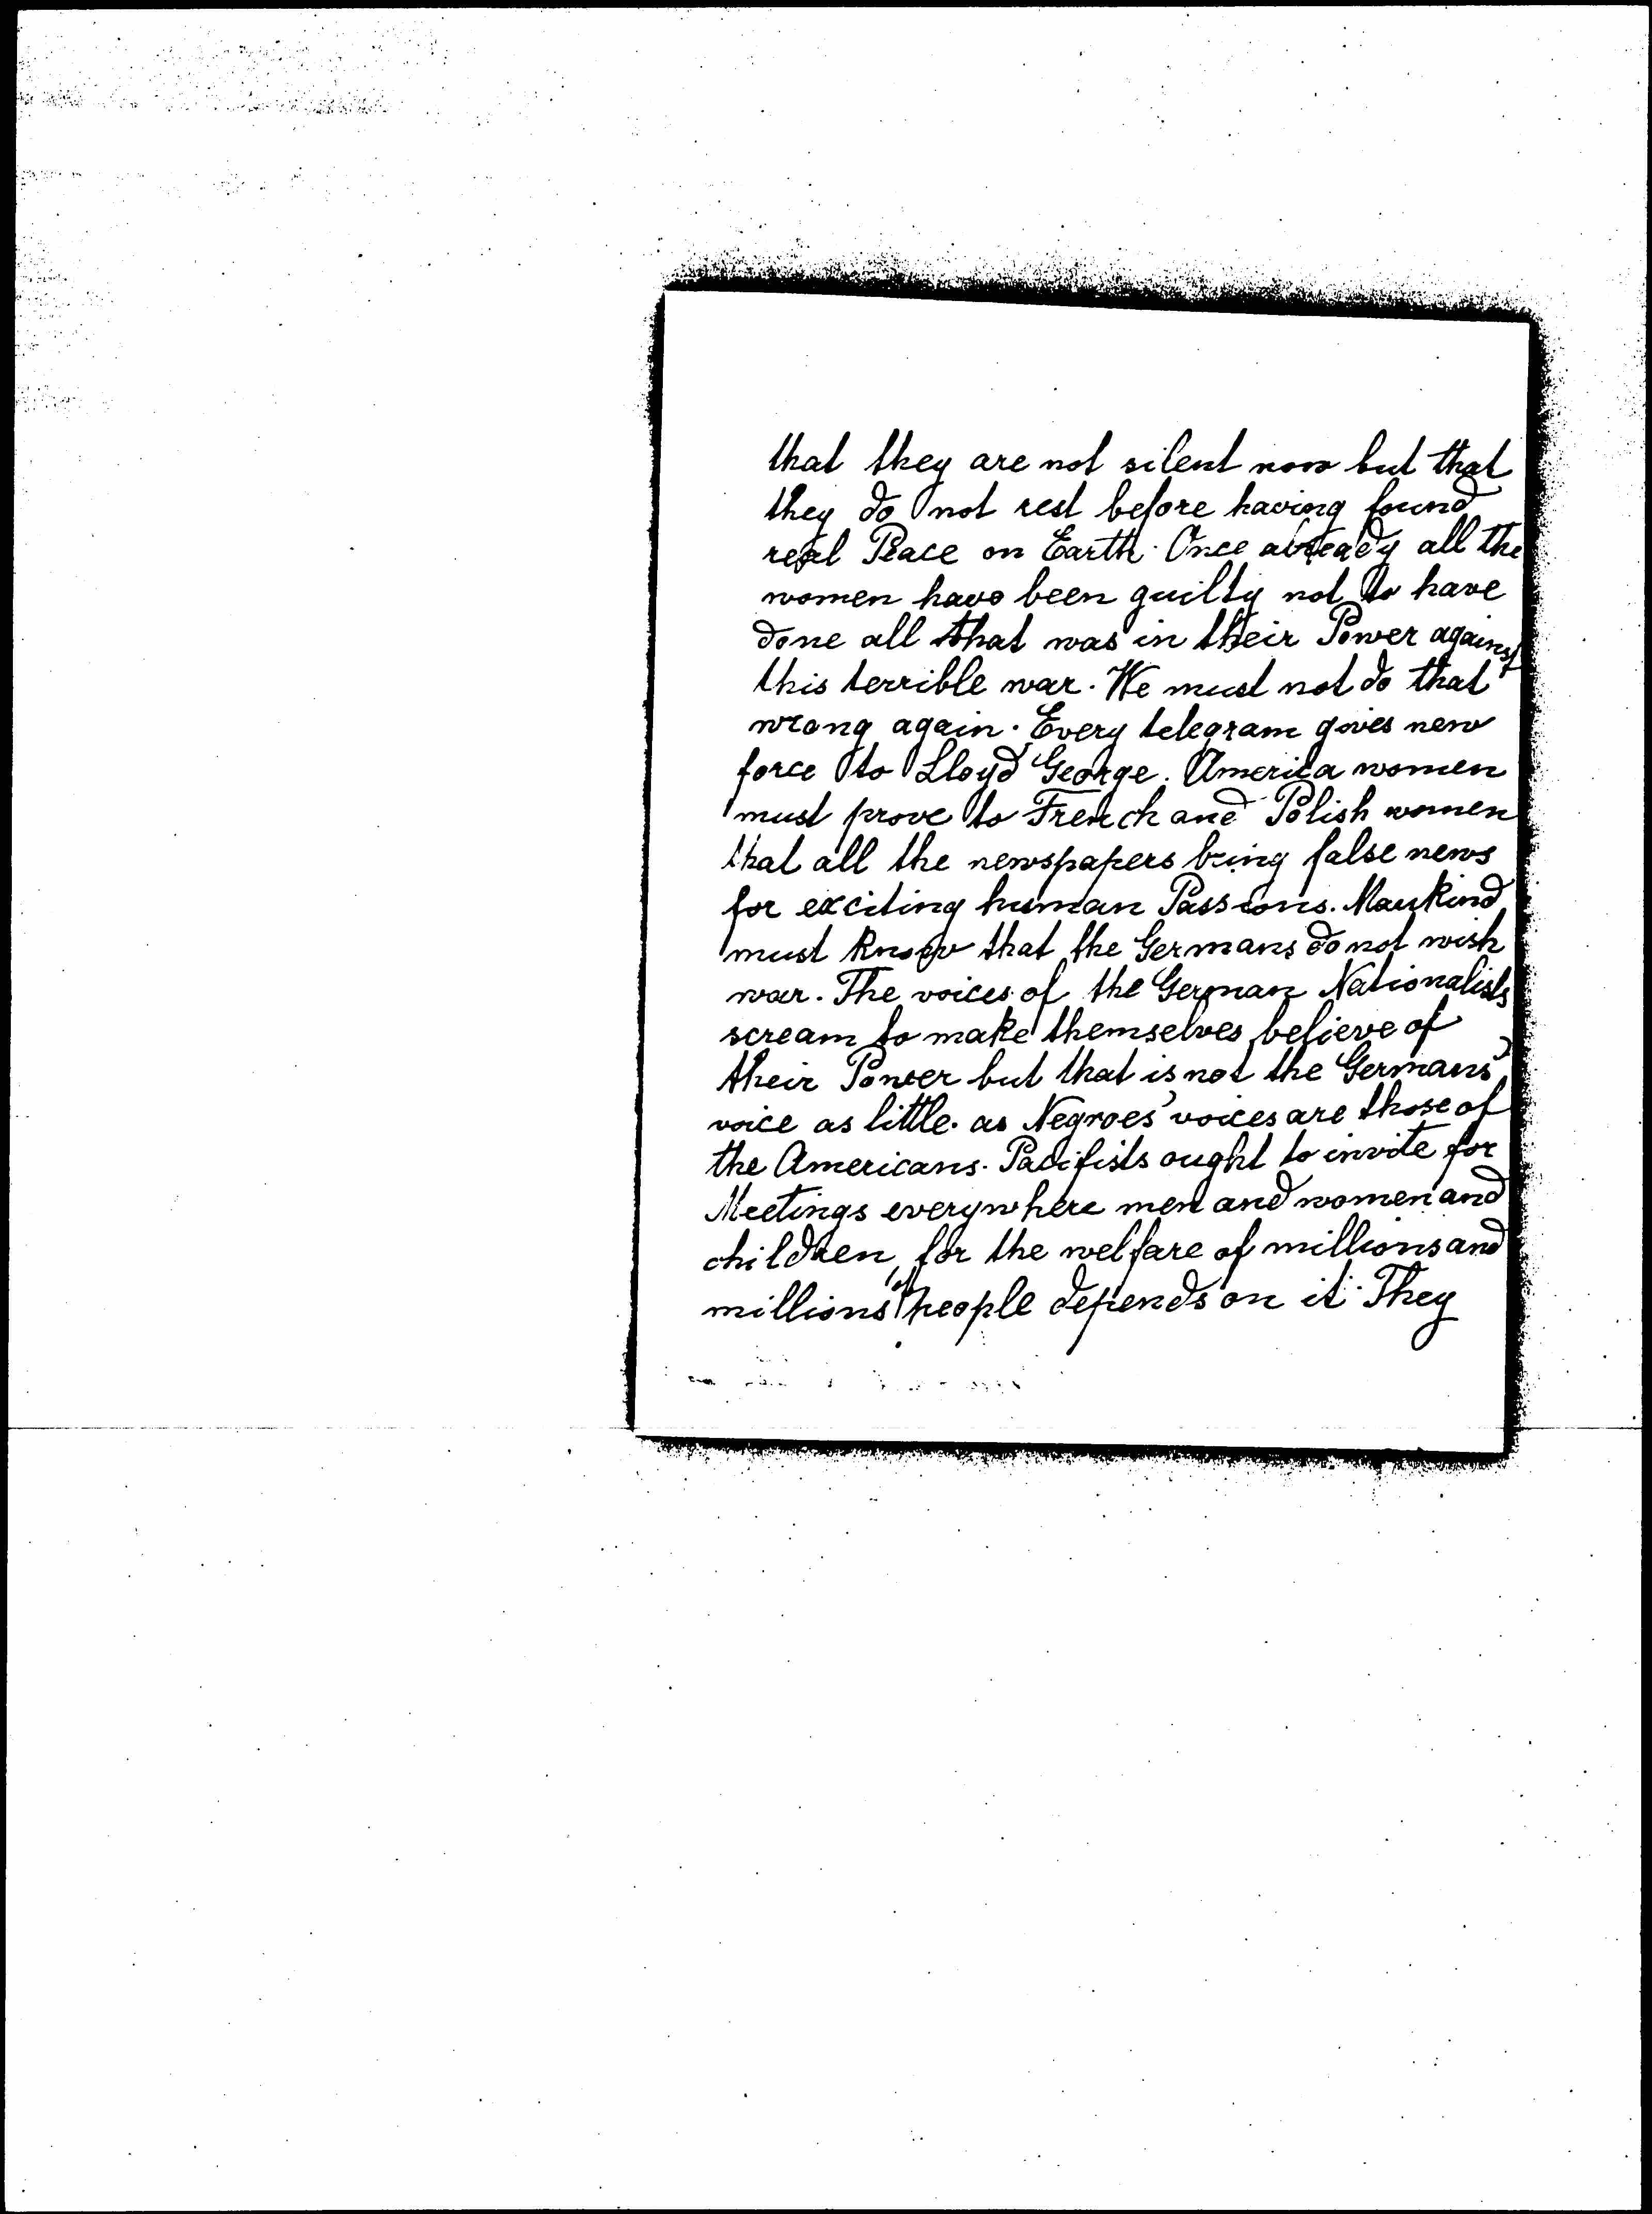 that they are not silent now but that
they do not rest before having found
real Peace on Earth. Once already all the
women have been guilty not to have
done all that was in their Power against
this terrible war. We must not do that
wrong again. Every telegram gives new
force to Lloyd George. America women
must prove to French and Polish women
that all the newspapers bring false news
for exciting human Passions. Mankind
must know that the Germans do not wish
war. The voices of the German Nationalists
scream to make themselves believe of
their Power but that is not the Germans'
voice as little as Negroes' voices are those of
the Americans. Pacifists ought to invite for
Meetings everywhere men and women and
children, for the welfare of millions and
millions of people depends on it. They